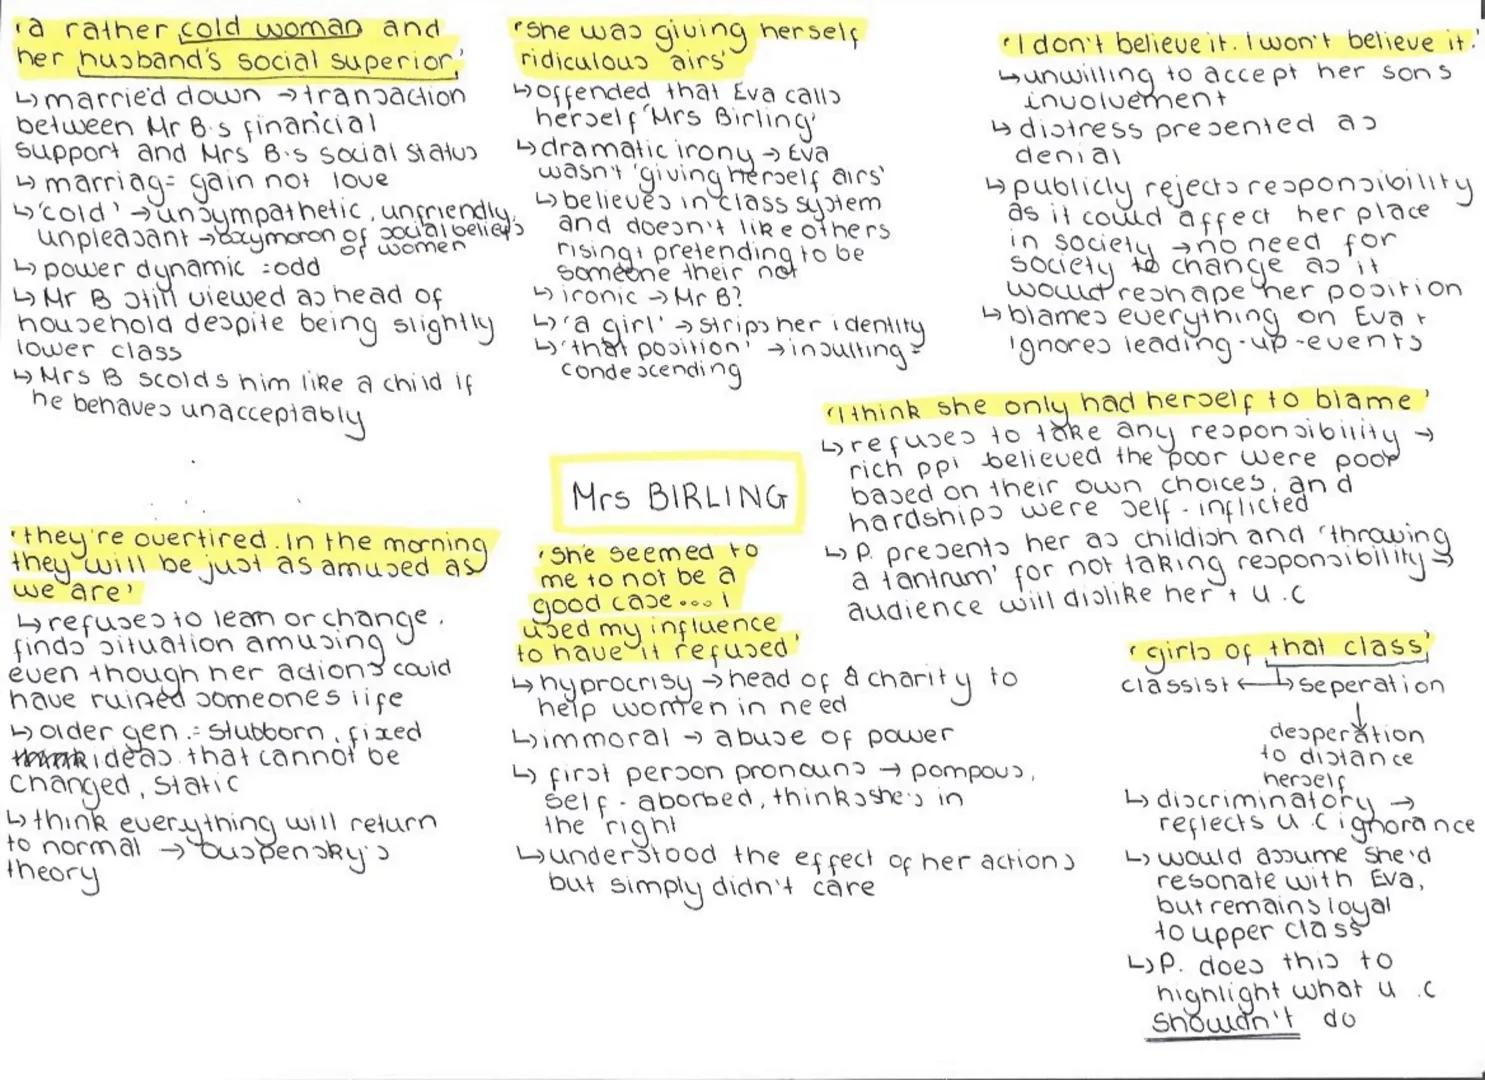 'a rather cold woman and
her husband's social superior'
↳ married down → transaction
between Mr B's financial
support and Mrs B's social status
↳ marriag= gain not love
↳ 'cold' → unsympathetic, unfriendly,
unpleasant → oxymoron of social beliefs
of women
↳ power dynamic = odd
↳ Mr B still viewed as head of
household despite being slightly
lower class
↳ Mrs B scolds him like a child if
he behaves unacceptably
'She was giving herself
ridiculous airs'
↳ offended that Eva calls
herself 'Mrs Birling'
↳ dramatic irony → Eva
wasn't 'giving herself airs'
↳ believes in class system
and doesn't like others
rising + pretending to be
someone their not
↳ ironic → Mr B?
↳ 'a girl' → strips her identity
↳ 'that position' → insulting =
condescending
'I don't believe it. I won't believe it.'
↳ unwilling to accept her sons
involvement
↳ distress presented as
denial
↳ publicly rejects responsibility
as it could affect her place
in society → no need for
society to change as it
would reshape her position
↳ blames everything on Eva +
ignores leading-up-events
'I think she only had herself to blame'
↳ refuses to take any responsibility →
rich ppl believed the poor were poor
based on their own choices, and
hardships were self-inflicted
↳ P. presents her as childish and 'throwing
a tantrum' for not taking responsibility →
audience will dislike her + u.c
Mrs BIRLING
'they're overtired. In the morning
they will be just as amused as
we are'
↳ refuses to learn or change.
finds situation amusing
even though her actions could
have ruined someones life
↳ older gen = stubborn, fixed
ideas that cannot be
changed, static
↳ think everything will return
to normal → Ouspensky's
theory
'She seemed to
me to not be a
good case... I
used my influence
to have it refused'
↳ hyprocrisy → head of a charity to
help women in need
↳ immoral → abuse of power
↳ first person pronouns → pompous,
self-aborbed, thinks she's in
the right
↳ understood the effect of her actions
but simply didn't care
'girls of that class'
classist ← → seperation
↓
desperation
to distance
herself
↳ discriminatory →
reflects u.c ignorance
↳ would assume she'd
resonate with Eva,
but remains loyal
to upper class
↳ P. does this to
highlight what u.c
shouldn't do